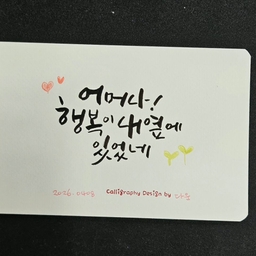 어머나!
행복이 내 옆에
있었네
Calligraphy Design by